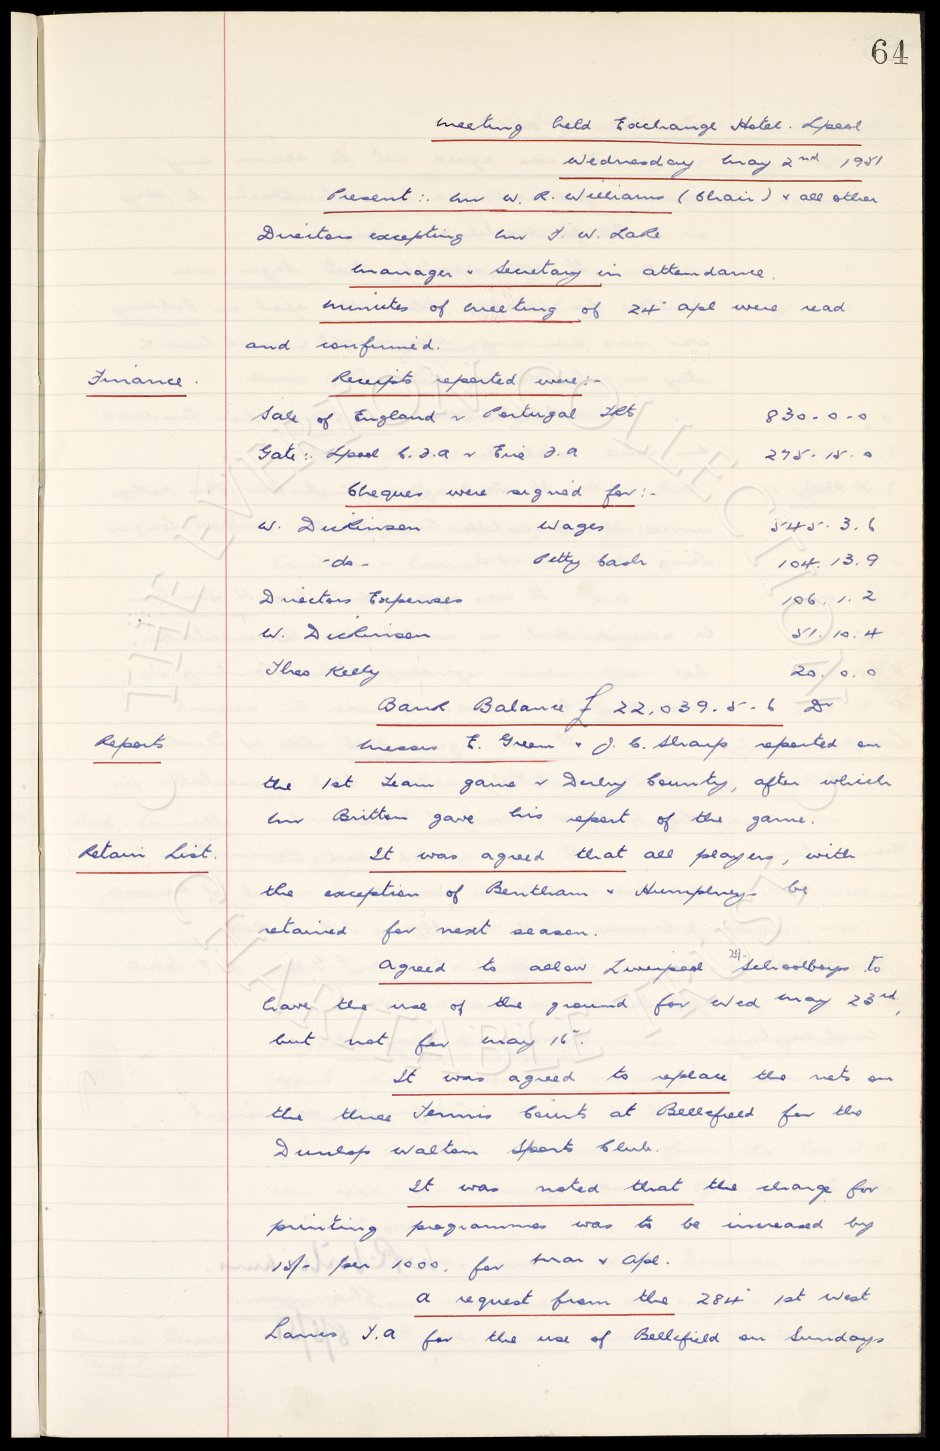 64
Meeting held Exchange Hotel. Lpool
Wednesday May 2nd 1951
Present:. Mr W. R. Williams (Chair) & all other
Directors excepting Mr T. W. Lake
Manager & Secretary in attendance.
Minutes of Meeting of 24" Apl were read
and confirmed.
Finance. Receipts reported were:-
Sale of England v Portugal Tkts 830-0-0
Gate:. Lpool C.F.A v Eire F.A 275.15.0
Cheques were signed for:-
W. Dickinson Wages 545.3.6
-do- Petty Cash 104.13.9
Directors Expenses 106.1.2
W. Dickinson 51.10.4
Theo Kelly 20.0.0
Bank Balance £22,039.5.6 Dr
Reports Messrs E. Green & J. C. Sharp reported on
the 1st Team game v Derby County, after which
Mr Britton gave his report of the game.
Retain List. It was agreed that all players, with
the exception of Bentham & Humphreys be
retained for next season.
Agreed to allow Liverpool Schoolboys to
have the use of the ground for Wed May 23rd,
but not for May 16".
It was agreed to replace the nets on
the three Tennis Courts at Bellefield for the
Dunlop Walton Sports Club.
It was noted that the charge for
printing programmes was to be increased by
15/- per 1000, for Mar & Apl.
A request from the 284" 1st West
Lancs T.A for the use of Bellefield on Sundays
THE EVERTON COLLECTION
CHARITABLE TRUST